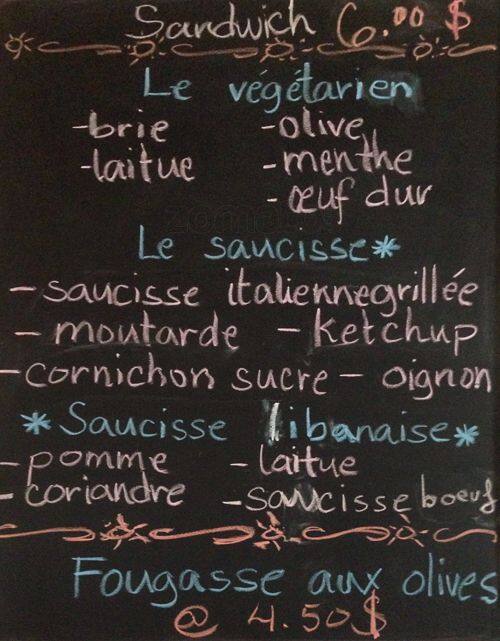 Sandwich 6.00 $
Le végétarien
-brie -olive
-laitue -menthe
-œuf dur
zomato
Le saucisse*
- saucisse italiennegrillée
- moutarde - ketchup
- cornichon sucre - oignon
*Saucisse libanaise*
- pomme - laitue
- coriandre - saucisse boeuf
Fougasse aux olives
@ 4.50$